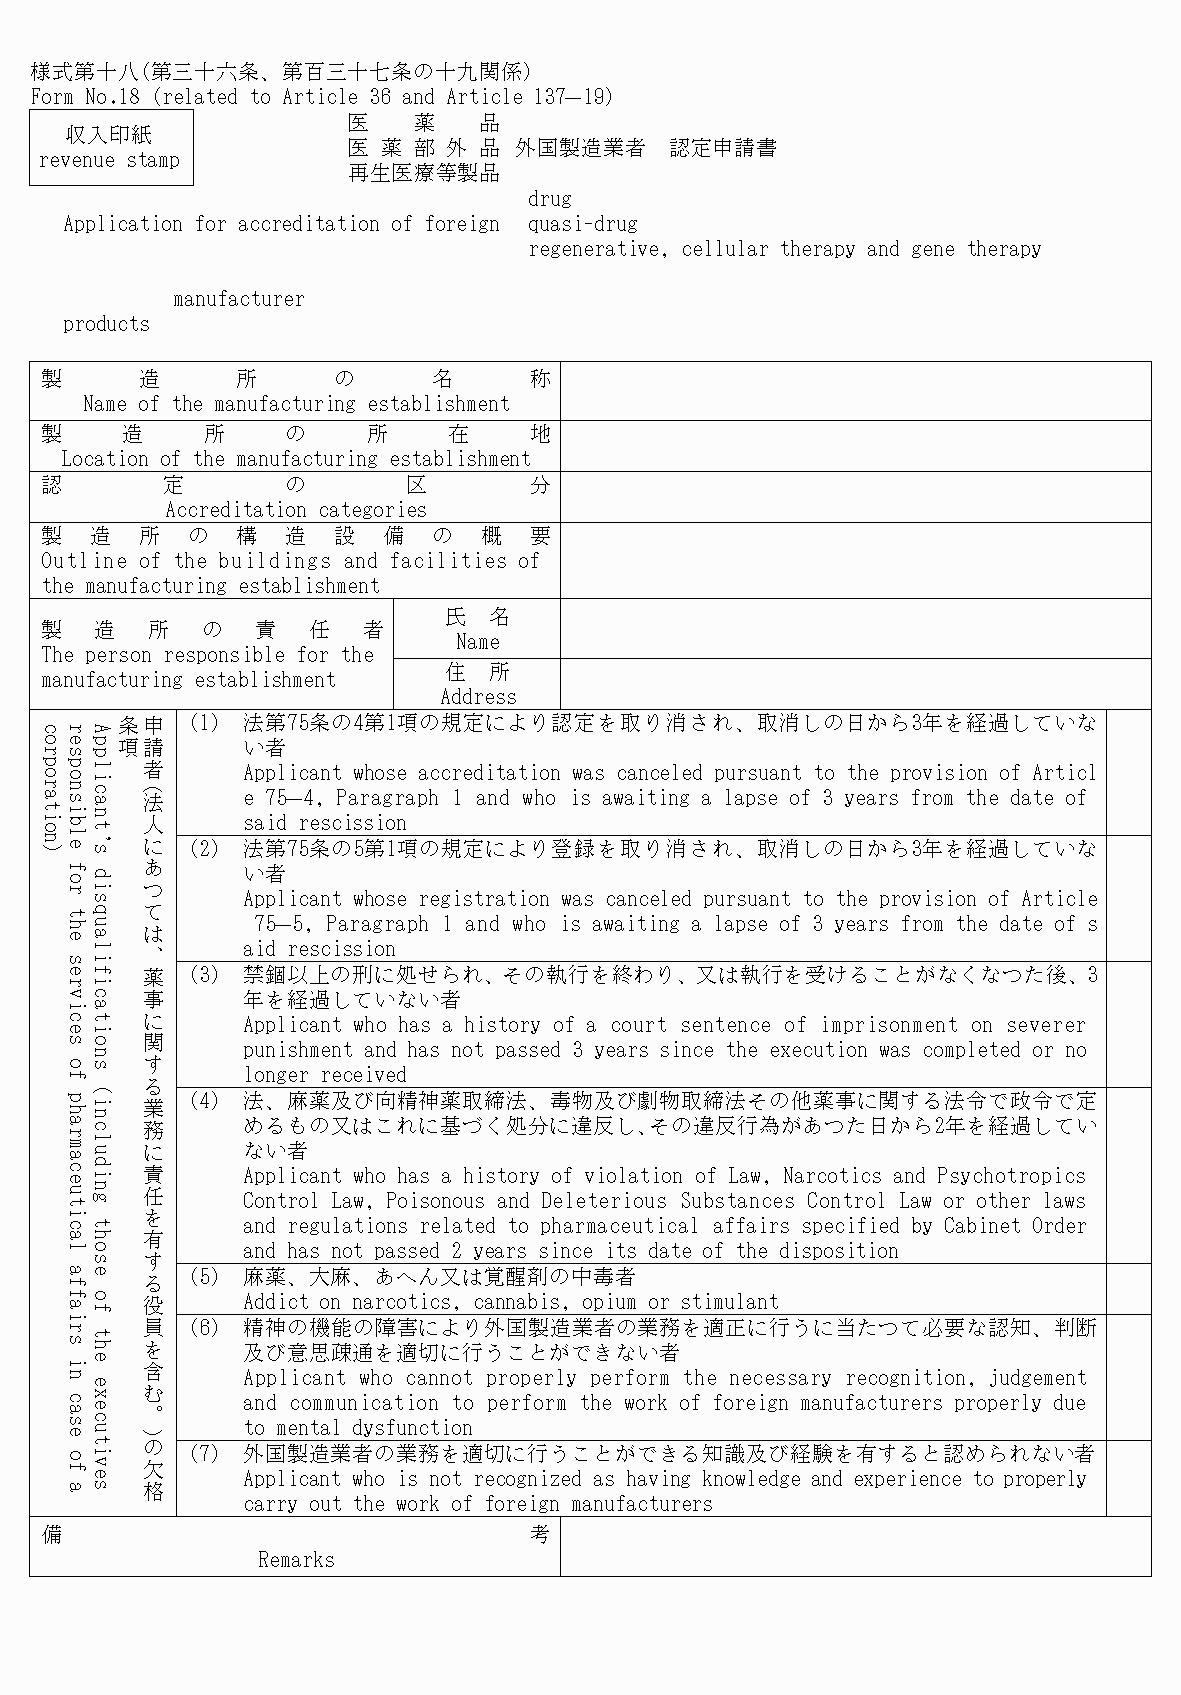 様式第十八(第三十六条、第百三十七条の十九関係)
Form No.18 (related to Article 36 and Article 137—19)
収入印紙
revenue stamp
医薬品
医薬部外品 外国製造業者 認定申請書
再生医療等製品
drug
Application for accreditation of foreign quasi-drug
regenerative, cellular therapy and gene therapy
manufacturer
products
製造所の名称
Name of the manufacturing establishment
製造所の所在地
Location of the manufacturing establishment
認定の区分
Accreditation categories
製造所の構造設備の概要
Outline of the buildings and facilities of
the manufacturing establishment
製造所の責任者
The person responsible for the
manufacturing establishment
氏名
Name
住所
Address
申請者(法人にあつては、薬事に関する業務に責任を有する役員を含む。)の欠格
条項
Applicant's disqualifications (including those of the executives
responsible for the services of pharmaceutical affairs in case of a
corporation)
(1) 法第75条の4第1項の規定により認定を取り消され、取消しの日から3年を経過していな
い者
Applicant whose accreditation was canceled pursuant to the provision of Articl
e 75—4, Paragraph 1 and who is awaiting a lapse of 3 years from the date of
said rescission
(2) 法第75条の5第1項の規定により登録を取り消され、取消しの日から3年を経過していな
い者
Applicant whose registration was canceled pursuant to the provision of Article
75—5, Paragraph 1 and who is awaiting a lapse of 3 years from the date of s
aid rescission
(3) 禁錮以上の刑に処せられ、その執行を終わり、又は執行を受けることがなくなつた後、3
年を経過していない者
Applicant who has a history of a court sentence of imprisonment on severer
punishment and has not passed 3 years since the execution was completed or no
longer received
(4) 法、麻薬及び向精神薬取締法、毒物及び劇物取締法その他薬事に関する法令で政令で定
めるもの又はこれに基づく処分に違反し、その違反行為があつた日から2年を経過してい
ない者
Applicant who has a history of violation of Law, Narcotics and Psychotropics
Control Law, Poisonous and Deleterious Substances Control Law or other laws
and regulations related to pharmaceutical affairs specified by Cabinet Order
and has not passed 2 years since its date of the disposition
(5) 麻薬、大麻、あへん又は覚醒剤の中毒者
Addict on narcotics, cannabis, opium or stimulant
(6) 精神の機能の障害により外国製造業者の業務を適正に行うに当たつて必要な認知、判断
及び意思疎通を適切に行うことができない者
Applicant who cannot properly perform the necessary recognition, judgement
and communication to perform the work of foreign manufacturers properly due
to mental dysfunction
(7) 外国製造業者の業務を適切に行うことができる知識及び経験を有すると認められない者
Applicant who is not recognized as having knowledge and experience to properly
carry out the work of foreign manufacturers
備考
Remarks